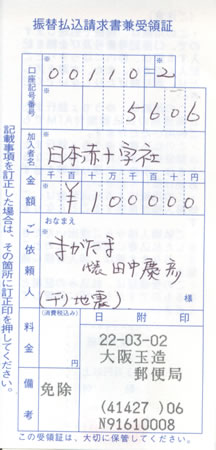 振替払込請求書兼受領証
口座記号番号
00110-2
5606
加入者名
日本赤十字社
金額
千 百 十 万 千 百 十 円
¥100000
ご依頼人
おなまえ
まがたま
田中慶彦
様
(チリ地震)
料金
(消費税込み)
円
日附印
22-03-02
大阪玉造
郵便局
(41427)06
N91610008
備考
免除
この受領証は、大切に保管してください。
記載事項を訂正した場合は、その箇所に訂正印を押してください。